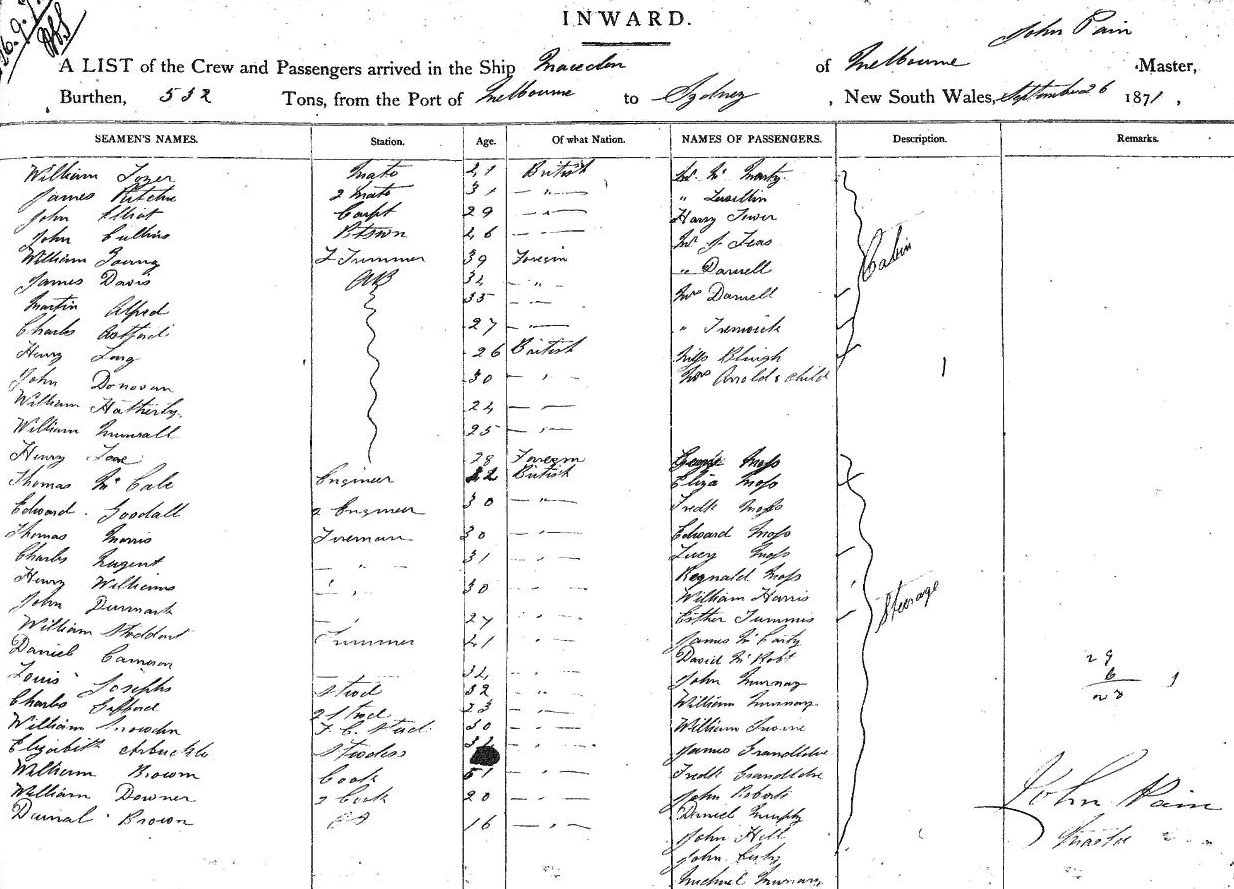 INWARD.
John Pain
A LIST of the Crew and Passengers arrived in the Ship Macedon of Melbourne Master,
Burthen, 532 Tons, from the Port of Melbourne to Sydney, New South Wales, September 26 1871,
SEAMEN'S NAMES. Station. Age. Of what Nation. NAMES OF PASSENGERS. Description. Remarks.
William Tozer Mate British
James Ritchie 2 Mate 31 — " — "
John Elliot Carpt 29 — " — Harry Tower
John Cullins 26 Mr J.
William Young 39 Foreign " Darvell
James Davis AB — " — Mrs Darvell
Martin Alfred 35 — " —
Charles 27 — " — "
Henry Long 26 British Miss Bligh
John Donovan 30 — " — Mrs Arnold & child
William Hatherly 24 — " —
William 25 — " —
Henry Foreign George Moss
Thomas Mc Engineer British Eliza Moss
Edward Goodall 2 Engineer 30 — " — Fredk Moss
Thomas Morris Fireman 30 — " — Edward Moss
Charles Nugent — " — 31 — " — Lucy Moss
Henry Williams — " — 30 — " — Reginald Moss
John 27 — " — William Harris
William Stoddart Trimmer — " — Esther
Daniel Cameron — " — James McCarty
Louis Josephs Stwd 32 — " — David Mc
Charles Gifford 2 Stwd 23 — " — John Murray
William Snowden 30 — " — William Murray
Elizabeth Arbuckle Stwdess — " — William
William Brown Cook 51 — " — James
William Downer 2 Cook 20 — " — Fredk
Brown 16 — " — John Roberts
Daniel Murphy
John Hill
John
Michael Murray
Cabin
1
Steerage
29
6
23
1
John Pain
Master